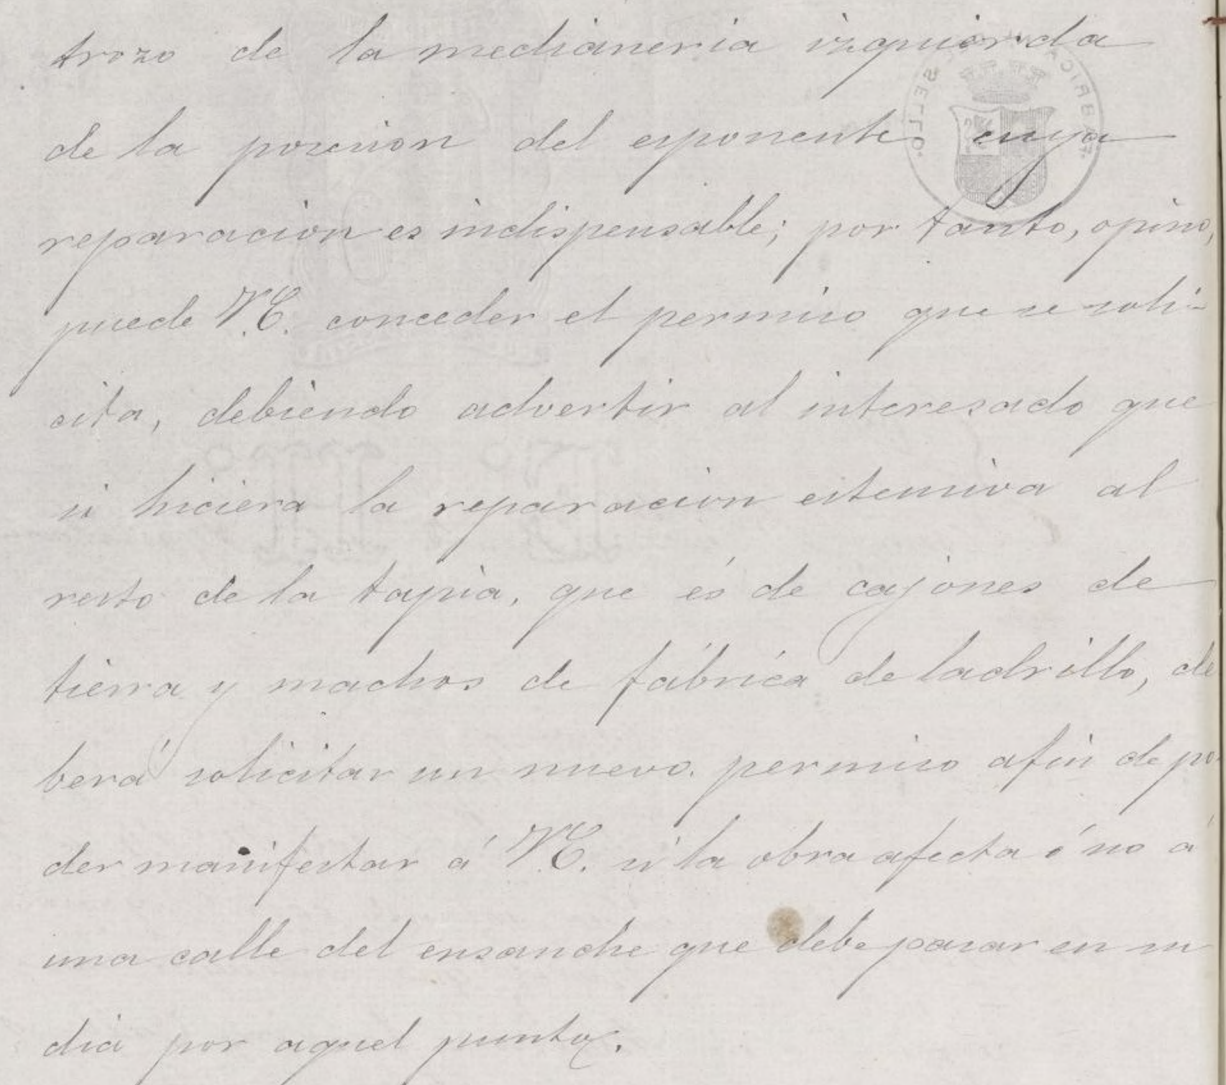 trozo de la medianeria izquierda
de la posesion del esponente cuya
reparacion es indispensable; por tanto, opino,
puede V.E. conceder el permiso que se soli-
cita, debiendo advertir al interesado que
si hiciera la reparacion estensiva al
resto de la tapia, que és de cajones de
tierra y machos de fábrica de ladrillo, de
berá solicitar un nuevo permiso afin de po
der manifestar á V.E. si la obra afecta ó no á
una calle del ensanche que debe pasar en su
dia por aquel punto.